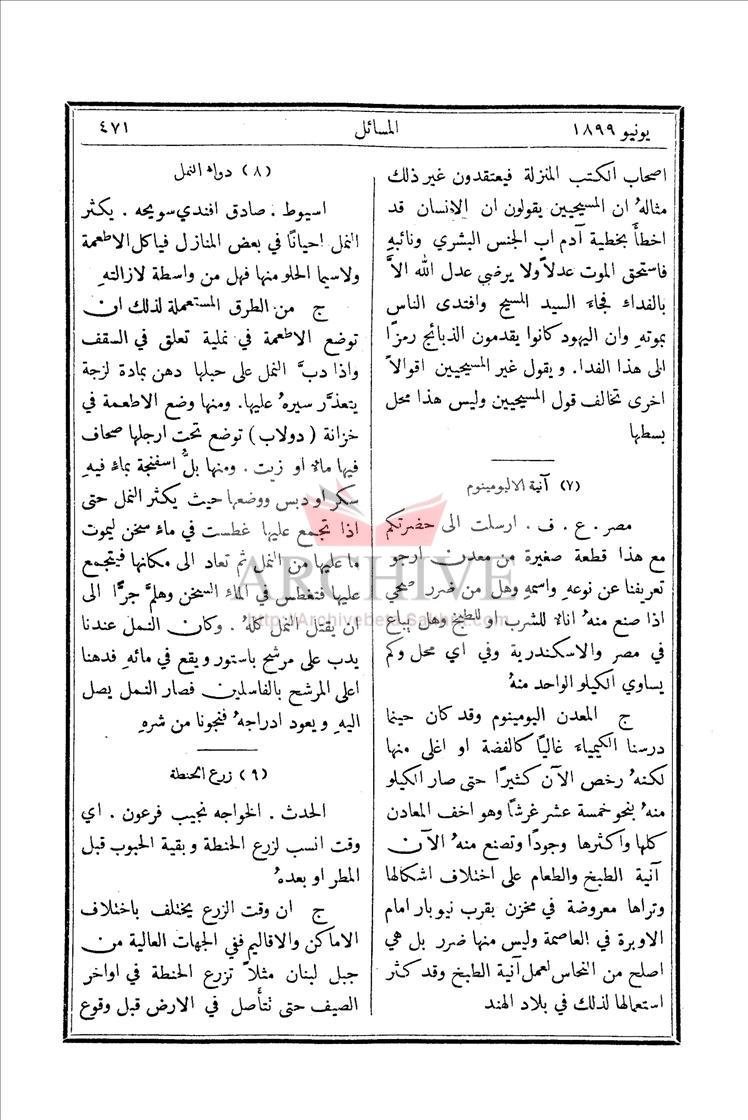 يونيو ١٨٩٩
المسائل
٤٧١
اصحاب الكتب المنزلة فيعتقدون غير ذلك
مثالهُ ان المسيحيين يقولون ان الانسان قد
اخطأَ بخطية آدم اب الجنس البشري ونائبهِ
فاستحق الموت عدلاً ولا يرضي عدل الله الاَّ
بالفداء فجاء السيد المسيح وافتدى الناس
بموتهِ وان اليهود كانوا يقدمون الذبائح رمزًا
الى هذا الفدا. ويقول غير المسيحيين اقوالاً
اخرى تخالف قول المسيحيين وليس هذا محل
بسطها
(٧) آنية الاليومينوم
مصر. ع. ف. ارسلت الى حضرتكم
مع هذا قطعة صغيرة من معدن ارجو
تعريفنا عن نوعهِ واسمهِ وهل من ضرر صحي
اذا صنع منهُ اناء للشرب او للطبخ وهل يباع
في مصر والاسكندرية وفي اي محل وكم
يساوي الكيلو الواحد منهُ
ج المعدن اليومينوم وقد كان حينما
درسنا الكيمياء غاليًا كالفضة او اغلى منها
لكنهُ رخص الآن كثيرًا حتى صار الكيلو
منهُ بنحو خمسة عشر غرشًا وهو اخف المعادن
كلها واكثرها وجودًا وتصنع منهُ الآن
آنية الطبخ والطعام على اختلاف اشكالها
وتراها معروضة في مخزن بقرب نيو بار امام
الاوبرة في العاصمة وليس منها ضرر بل هي
اصلح من النحاس لعمل آنية الطبخ وقد كثر
استعمالها لذلك في بلاد الهند
(٨) دواء النمل
اسيوط. صادق افندي سويحه. يكثر
النمل احيانًا في بعض المنازل فياكل الاطعمة
ولاسيما الحلو منها فهل من واسطة لازالتهِ
ج من الطرق المستعملة لذلك ان
توضع الاطعمة في نملية تعلق في السقف
واذا دبَّ النمل على حبلها دهن بمادة لزجة
يتعذَّر سيرهُ عليها. ومنها وضع الاطعمة في
خزانة (دولاب) توضع تحت ارجلها صحاف
فيها ماء او زيت. ومنها بلُّ اسفنجة بماء فيهِ
سكر او دبس ووضعها حيث يكثر النمل حتى
اذا تجمع عليها غطست في ماء سخن ليموت
ما عليها من النمل ثم تعاد الى مكانها فيتجمع
عليها فتغطس في الماء السخن وهلمَّ جرًّا الى
ان يقتل النمل كلهُ. وكان النمل عندنا
يدب على مرشح باستور ويقع في مائهِ فدهنا
اعلى المرشح بالفاسلين فصار النمل يصل
اليهِ ويعود ادراجهُ فنجونا من شرهِ
(٩) زرع الحنطة
الحدث. الخواجه نجيب فرعون. اي
وقت انسب لزرع الحنطة وبقية الحبوب قبل
المطر او بعدهُ
ج ان وقت الزرع يختلف باختلاف
الاماكن والاقاليم ففي الجهات العالية من
جبل لبنان مثلاً تزرع الحنطة في اواخر
الصيف حتى تتأصل في الارض قبل وقوع
ARCHIVE
http://Archivebeta.Sakhrit.com